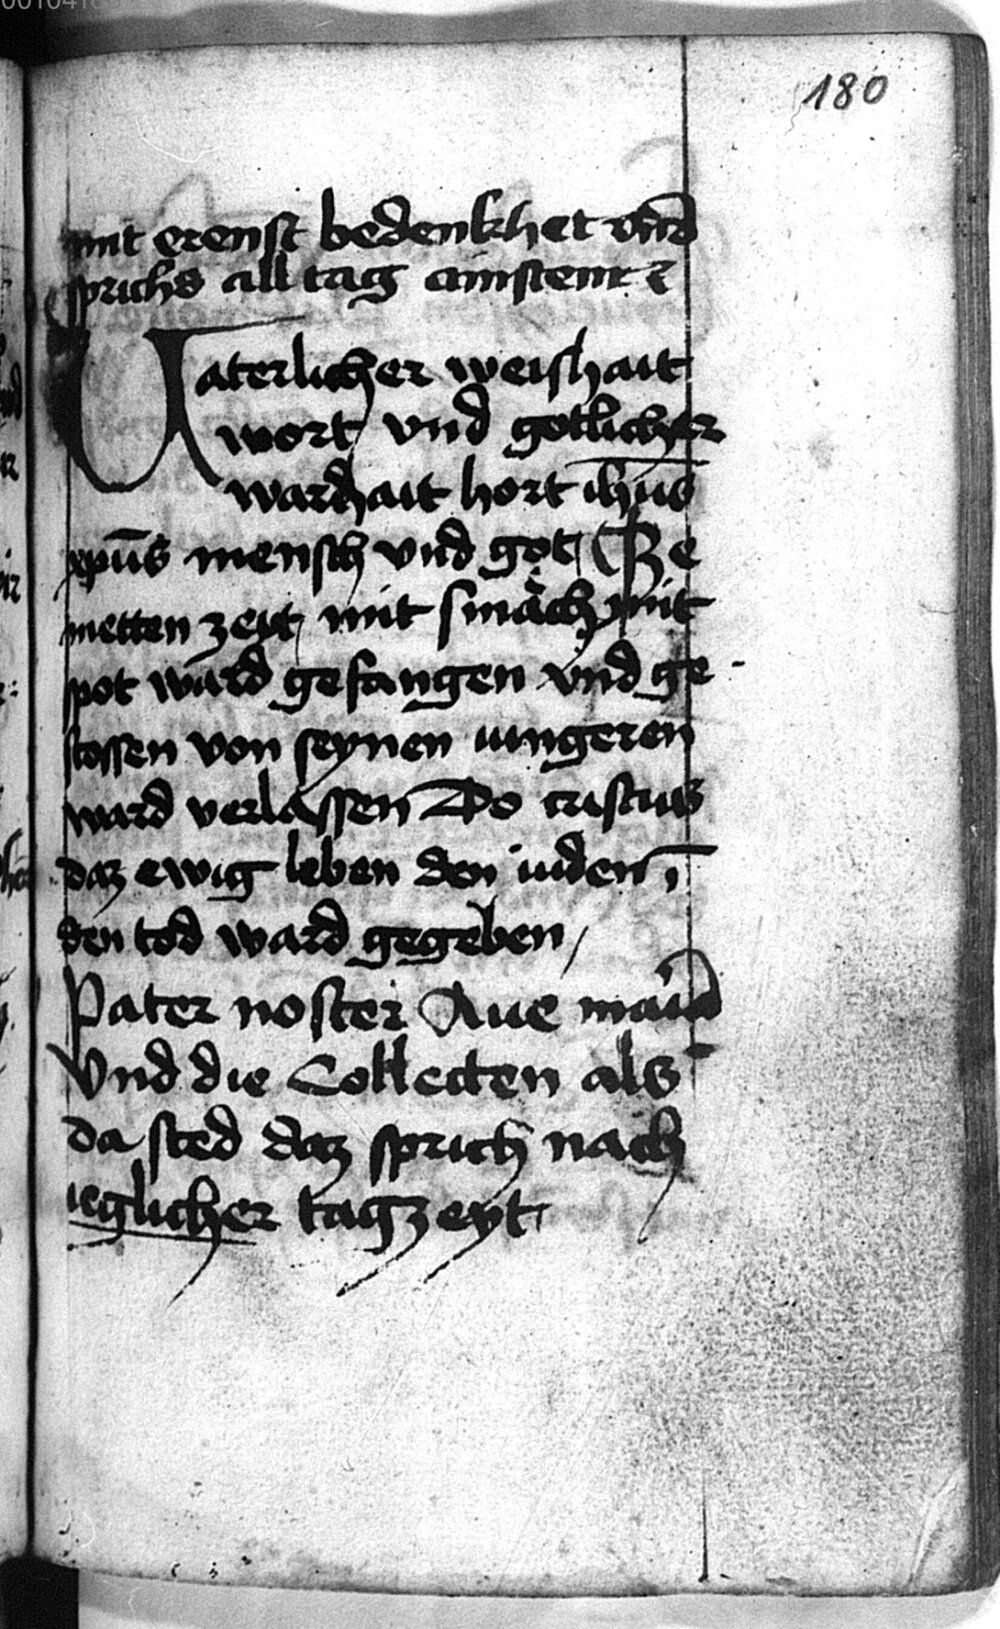 180
mit erenst bedenkhet vnd
sprichs all tag ainstem
Vaterlicher weishait
wort vnd gotlicher
warhait hort ihūs
xpūs mensch vnd got Ze
metten zeyt mit smäch mit
spot ward gefangen vnd ge
stossen von seynen iungeren
ward verlassen Do cristus
daz ewig leben den iuden ī
den tod ward gegeben /
Pater noster Aue maria
Vnd die Collecten als
da sted daz sprich nach
ieglicher tagzeyt